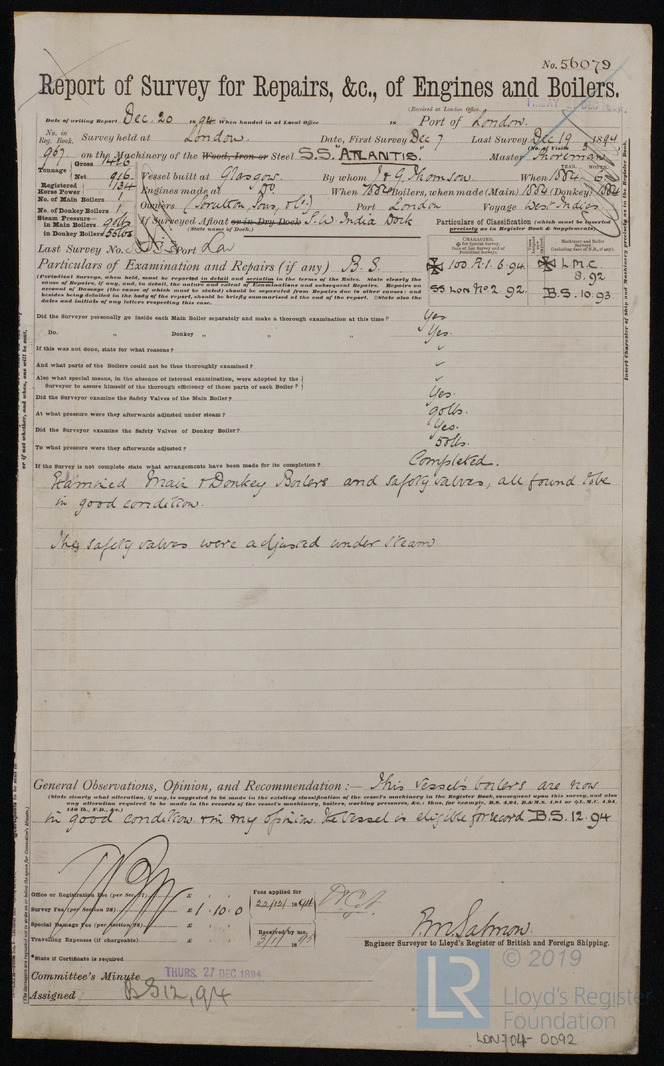 No. 56079
Report of Survey for Repairs, &c., of Engines and Boilers.
(Received at London Office
Date of writing Report Dec. 20 1894 When handed in at Local Office 18 Port of London.
No. in Reg. Book. Survey held at London. Date, First Survey Dec 7 Last Survey Dec 19 1894
(No. of Visits 3
967 on the Machinery of the Wood, Iron or Steel S.S. "ATLANTIS. Master
Tonnage Gross
Net 916
Registered 1134
Vessel built at Glasgow. By whom J & G. Thomson. When 1884
YEAR. MONTH.
Horse Power
Engines made at Do When 1884 Boilers, when made (Main) 1884 (Donkey) 1884
No. of Main Boilers 1
No. of Donkey Boilers 1
Owners. Scrutton, Sons, & Co. Port London Voyage West Indies
Steam Pressure—
in Main Boilers 90lbs
in Donkey Boilers
If Surveyed Afloat or in Dry Dock S.W. India Dock
(State name of Dock.)
Particulars of Classification (which must be inserted precisely as in Register Book & Supplements).
Last Survey No. Port Lon
Particulars of Examination and Repairs (if any) B.S.
CHARACTER.
Machinery and Boiler Surveys
100 A.1. 6.94.
L.M.C 8.92
SS LON No 2 92.
B.S. 10.93.
(Periodical Surveys, when held, must be reported in detail and seriatim in the terms of the Rules. State clearly the
cause of Repairs, if any, and, in detail, the nature and extent of Examinations and subsequent Repairs. Repairs on
account of Damage (the cause of which must be stated) should be separated from Repairs due to other causes; and
besides being detailed in the body of the report, should be briefly summarised at the end of the report. State also the
dates and initials of any letters respecting this case.
Did the Surveyor personally go inside each Main Boiler separately and make a thorough examination at this time? Yes
Do. " Donkey " " " Yes.
If this was not done, state for what reasons?
And what parts of the Boilers could not be thus thoroughly examined?
Also what special means, in the absence of internal examination, were adopted by the
Surveyor to assure himself of the thorough efficiency of those parts of each Boiler?
Did the Surveyor examine the Safety Valves of the Main Boiler? Yes.
At what pressure were they afterwards adjusted under steam? 90lbs.
Did the Surveyor examine the Safety Valves of Donkey Boiler? Yes.
To what pressure were they afterwards adjusted? 50lbs.
If the Survey is not complete state what arrangements have been made for its completion? Completed.
Examined Main & Donkey Boilers and safety valves, all found to be
in good condition.
The safety valves were adjusted under steam
General Observations, Opinion, and Recommendation:— This vessel's boilers are now
(State clearly what alteration, if any, is suggested to be made in the existing classification of the vessel's machinery in the Register Book, consequent upon this survey, and also
any alteration required to be made in the records of the vessel's machinery, boilers, working pressures, &c.; thus, for example, B.S. 4,94, B.&M.S. 4,94 or L.M.C. 4,94,
140 lb., F.D., &c.)
in good condition & in my opinion the vessel is eligible for record B.S. 12.94
Office or Registration Fee (per Sec. 27) £
Survey Fee (per Section 28) £ 1 . 10 . 0
Special Damage Fee (per Section 28) £
Travelling Expenses (if chargeable) £
Fees applied for
22/12/1894
Received by me,
3/1/1895
Engineer Surveyor to Lloyd's Register of British and Foreign Shipping.
*State if Certificate is required
Committee's Minute THURS. 27 DEC 1894
Assigned BS 12,94
LR
© 2019
Lloyd's Register
Foundation
LON704-0092